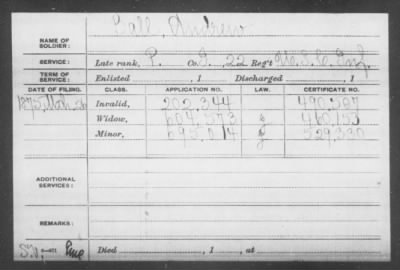 Ball, Andrew
NAME OF SOLDIER:
SERVICE: Late rank, P. Co. G, 22 Reg't U.S.C. Inf.
TERM OF SERVICE: Enlisted , 1 Discharged , 1
DATE OF FILING. CLASS. APPLICATION NO. LAW. CERTIFICATE NO.
1875, Mch. Invalid, 202,344 490,507
Widow, 604,573 460,153
Minor, 695,014 529,330
ADDITIONAL SERVICES:
REMARKS:
Died , 1 , at